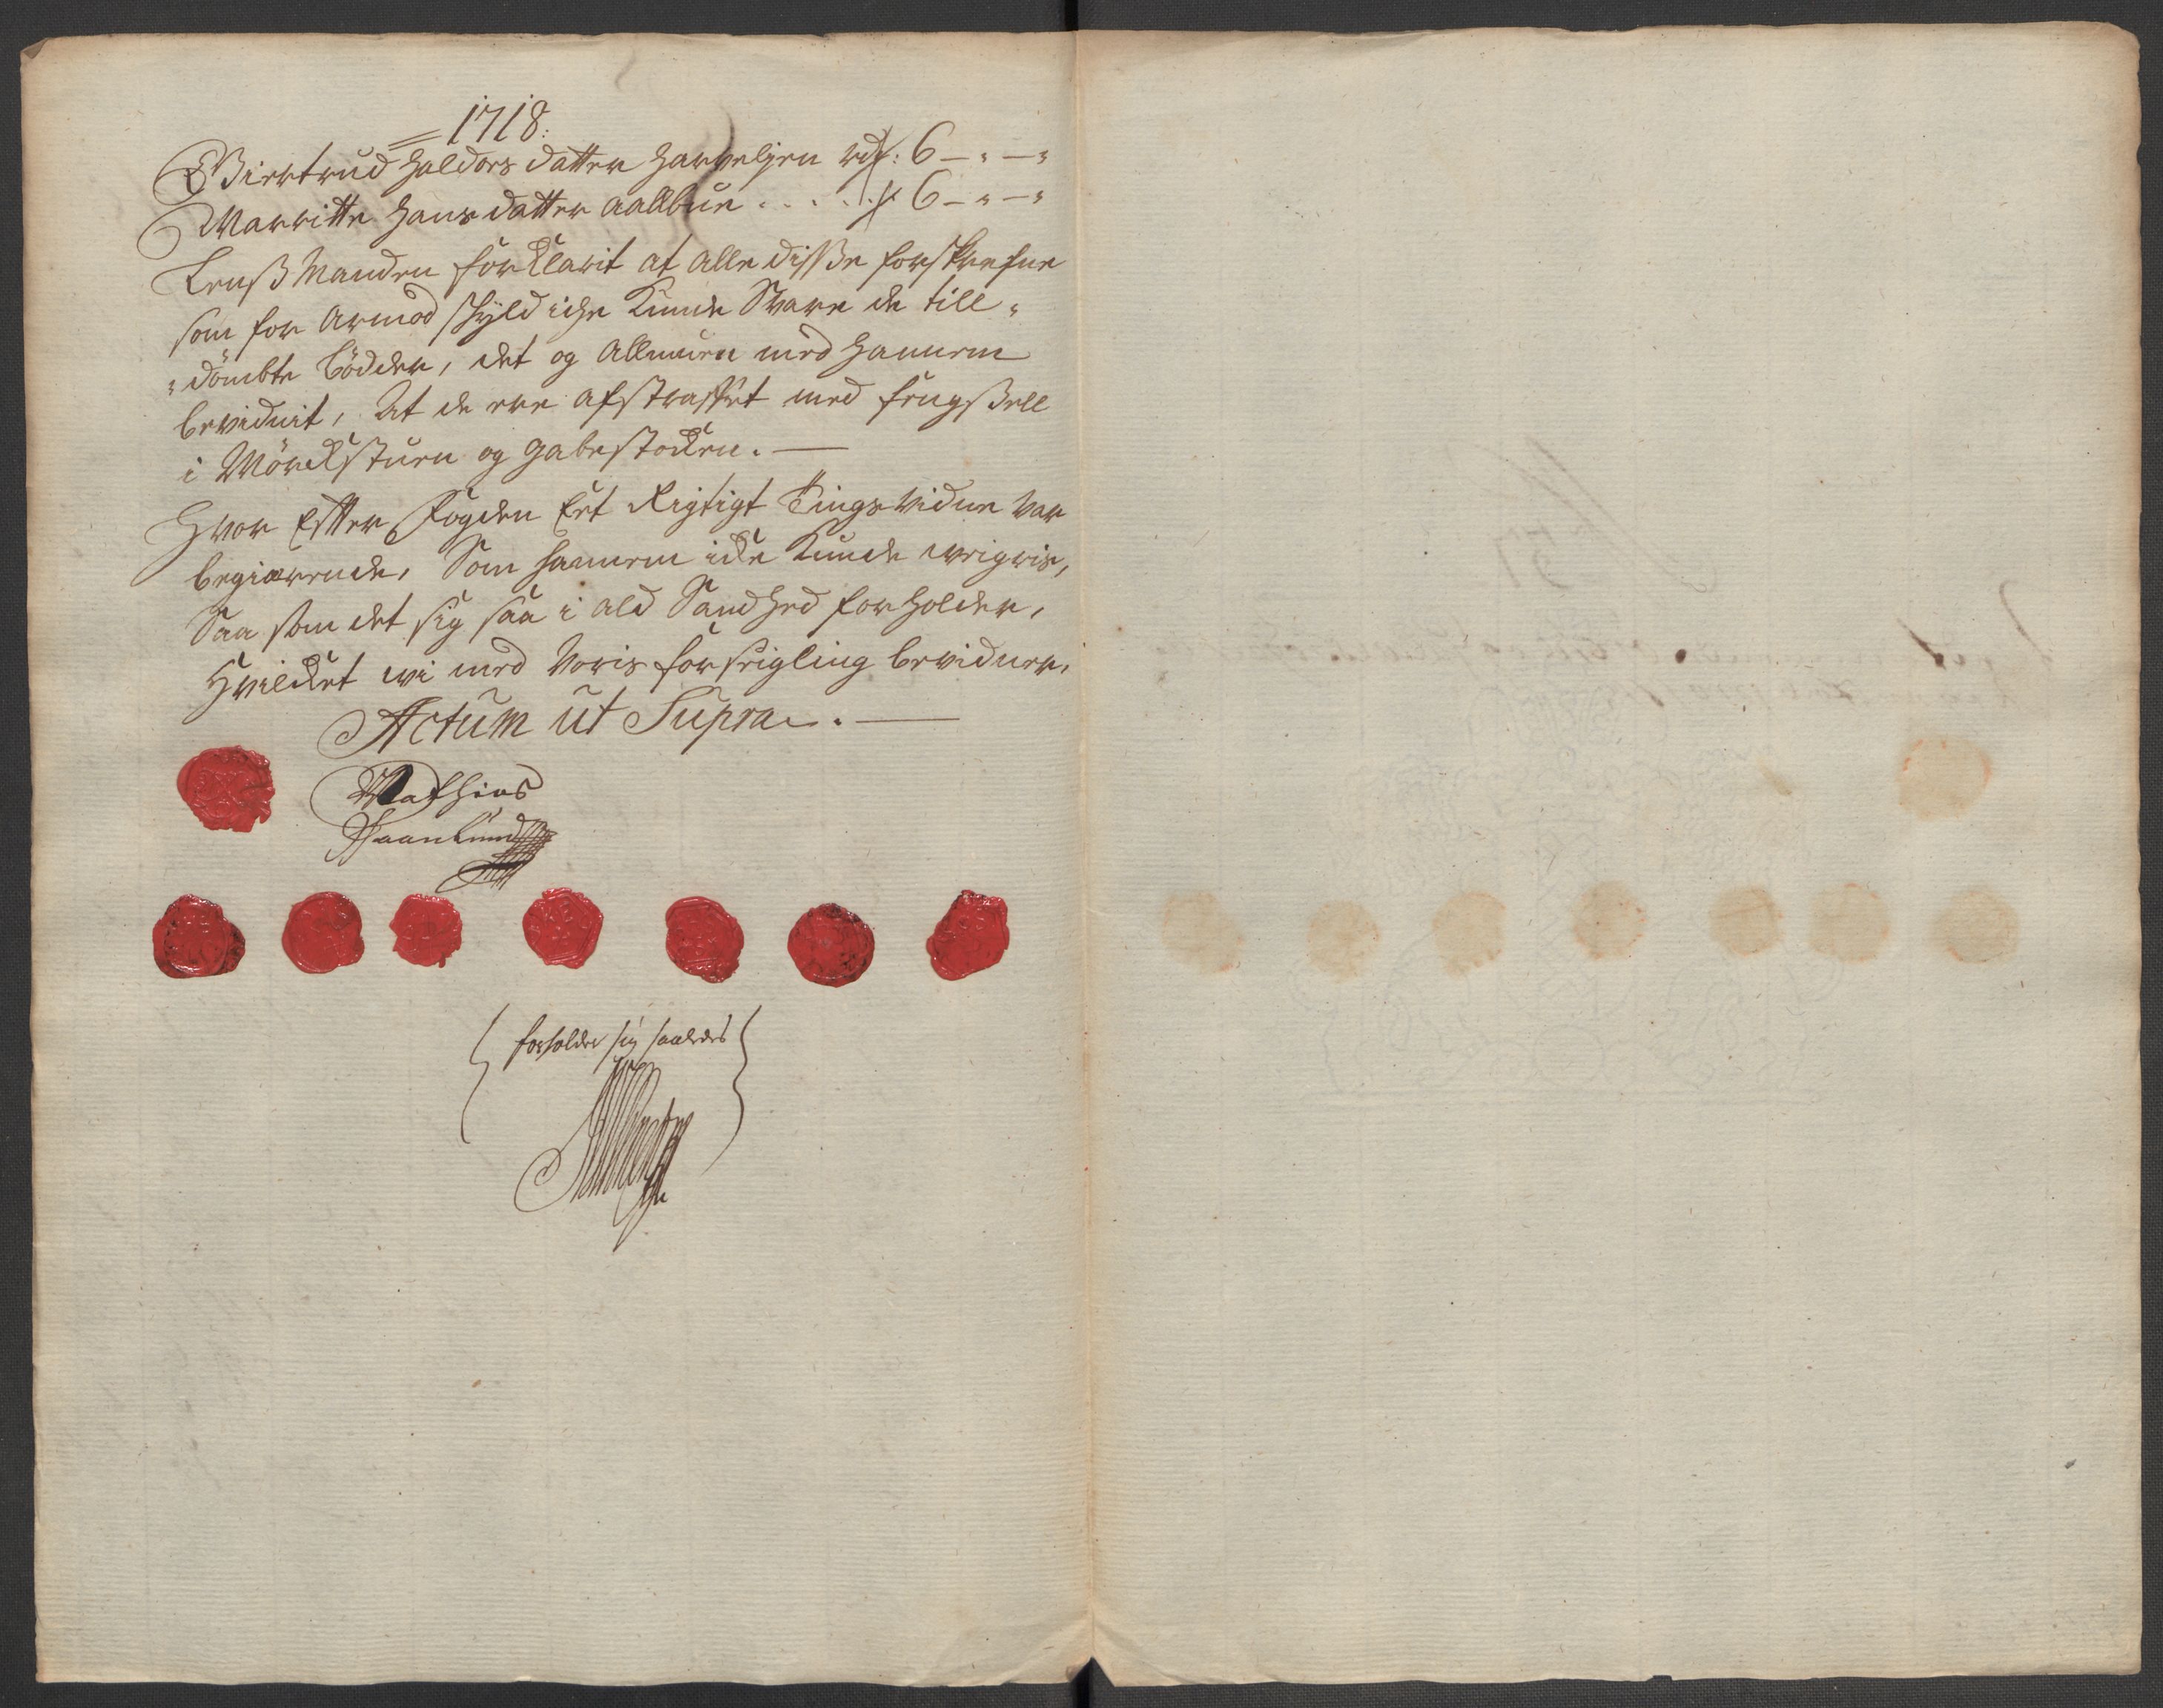 1718:
Giertrud Haldors datter Harveljen rdr: 6 - " - "
Marritte Hans datter Aalbue . . . . . 6 - " - "
Lensß Manden forKlarit at alle disße forskrefne
som for Armod skyld iche Kunde Svare de till-
dömbte bödder, det og Allmuen med hannem
bevidnit, At de ere afstraffet med fengsßell
i Mörckstuen og gabestocken. —
Hvor Efter Fogden Eet Rigtigt Tings Vidne var
begiærende, Som hannem icke Kunde wæigris,
Saa som det sig saa i ald Sandhed forholder,
Hvilcket wi med Voris forseigling bevidner,
Actum ut Supra. —
Mathias
forholder sig saaledes